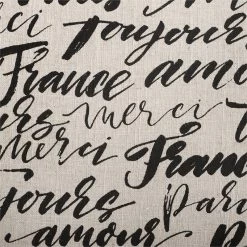 Merci toujours
France amo
urs merci
Merci France
jours Pari
amour